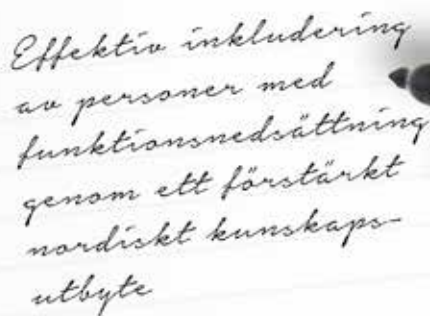 Effektiv inkludering
av personer med
funktionsnedsättning
genom ett förstärkt
nordiskt kunskaps-
utbyte